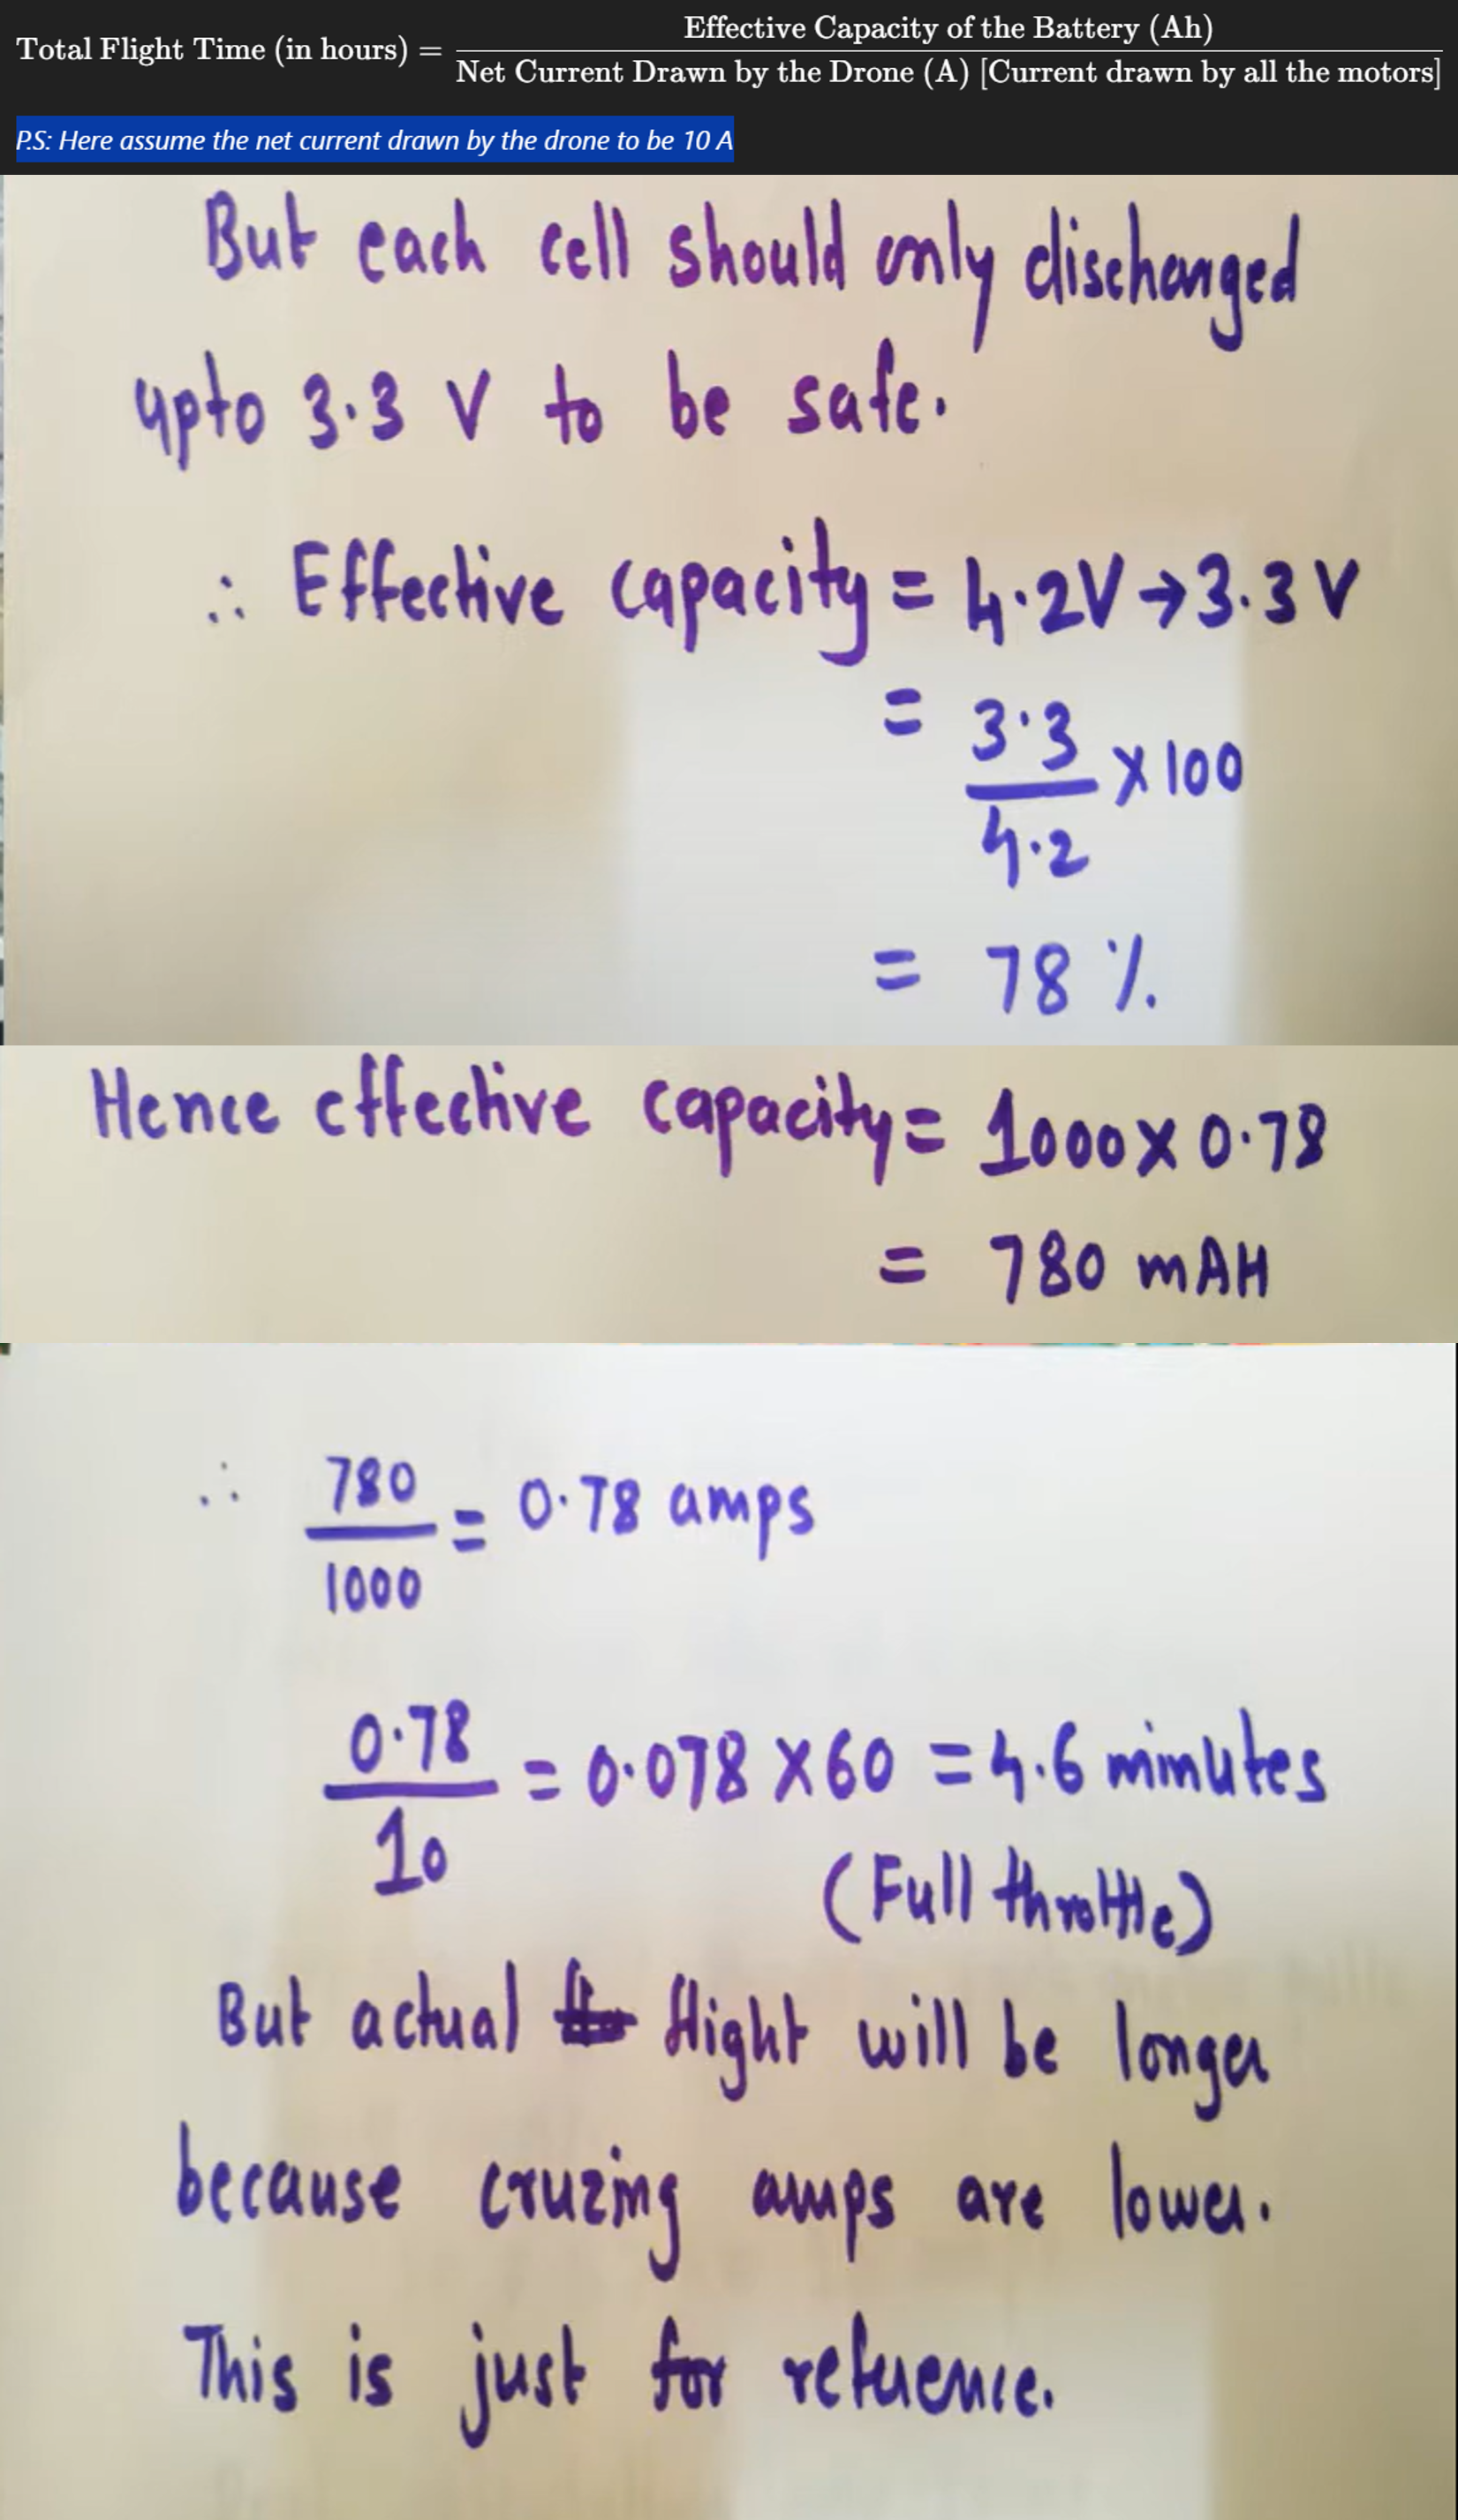 Total Flight Time (in hours) = Effective Capacity of the Battery (Ah) / Net Current Drawn by the Drone (A) [Current drawn by all the motors]
P.S: Here assume the net current drawn by the drone to be 10 A
But each cell should only discharged
upto 3.3 V to be safe.
∴ Effective capacity = 4.2V → 3.3 V
= 3.3 / 4.2 × 100
= 78 %.
Hence effective capacity = 1000 × 0.78
= 780 mAH
∴ 780 / 1000 = 0.78 amps
0.78 / 10 = 0.078 × 60 = 4.6 minutes
(Full throttle)
But actual flight will be longer
because cruzing amps are lower.
This is just for reference.